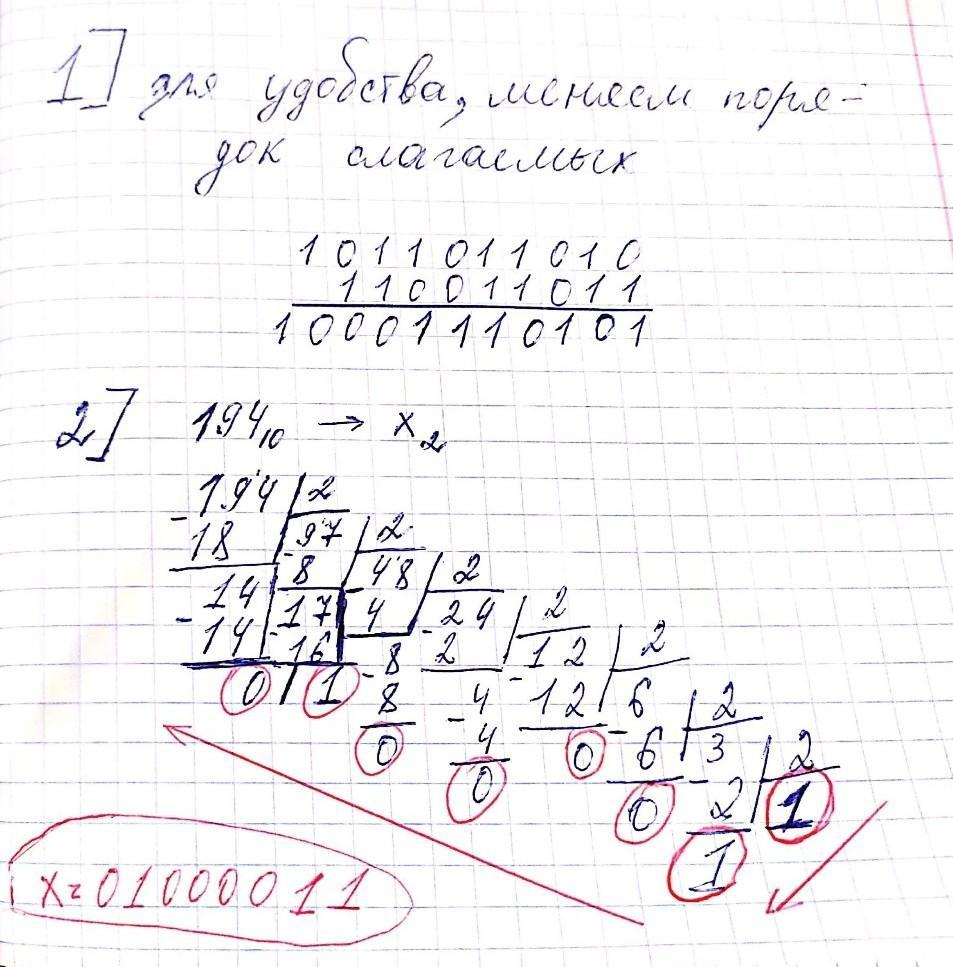 1] для удобства, меняем поря-
док слагаемых
1011011010
110011011
10001110101
2] 194₁₀ → x₂
- 194 | 2
18 - 97 | 2
14 8 - 48 | 2
- 14 17 4 - 24 | 2
- 16 - 8 2 - 12 | 2
0 1 8 - 4 12 - 6 | 2
0 4 0 6 - 3 | 2
0 0 2 1
1
x=01000011